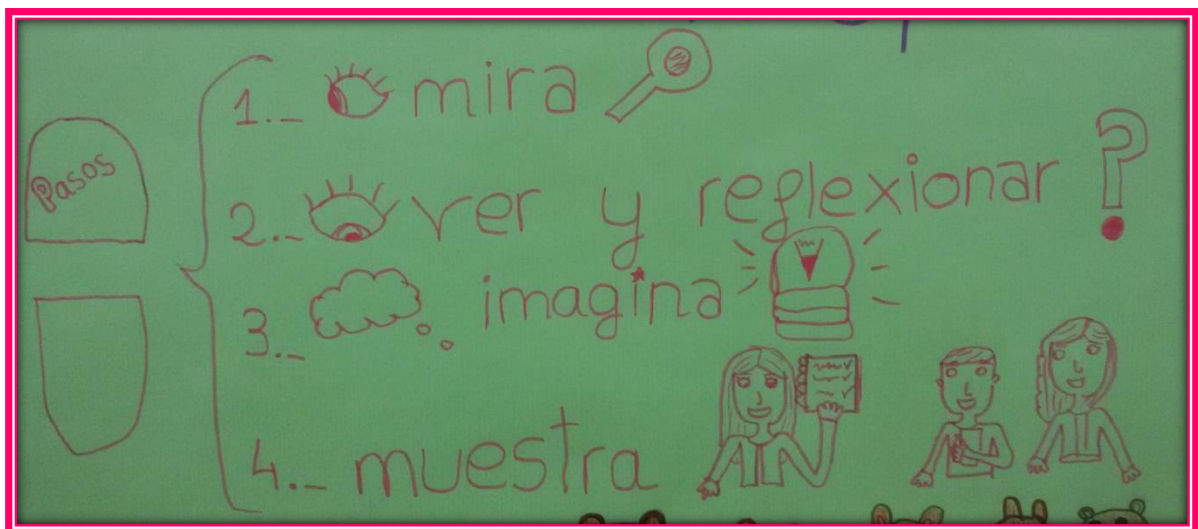 Pasos
1._ mira
2._ ver y reflexionar ?
3._ imagina
4._ muestra